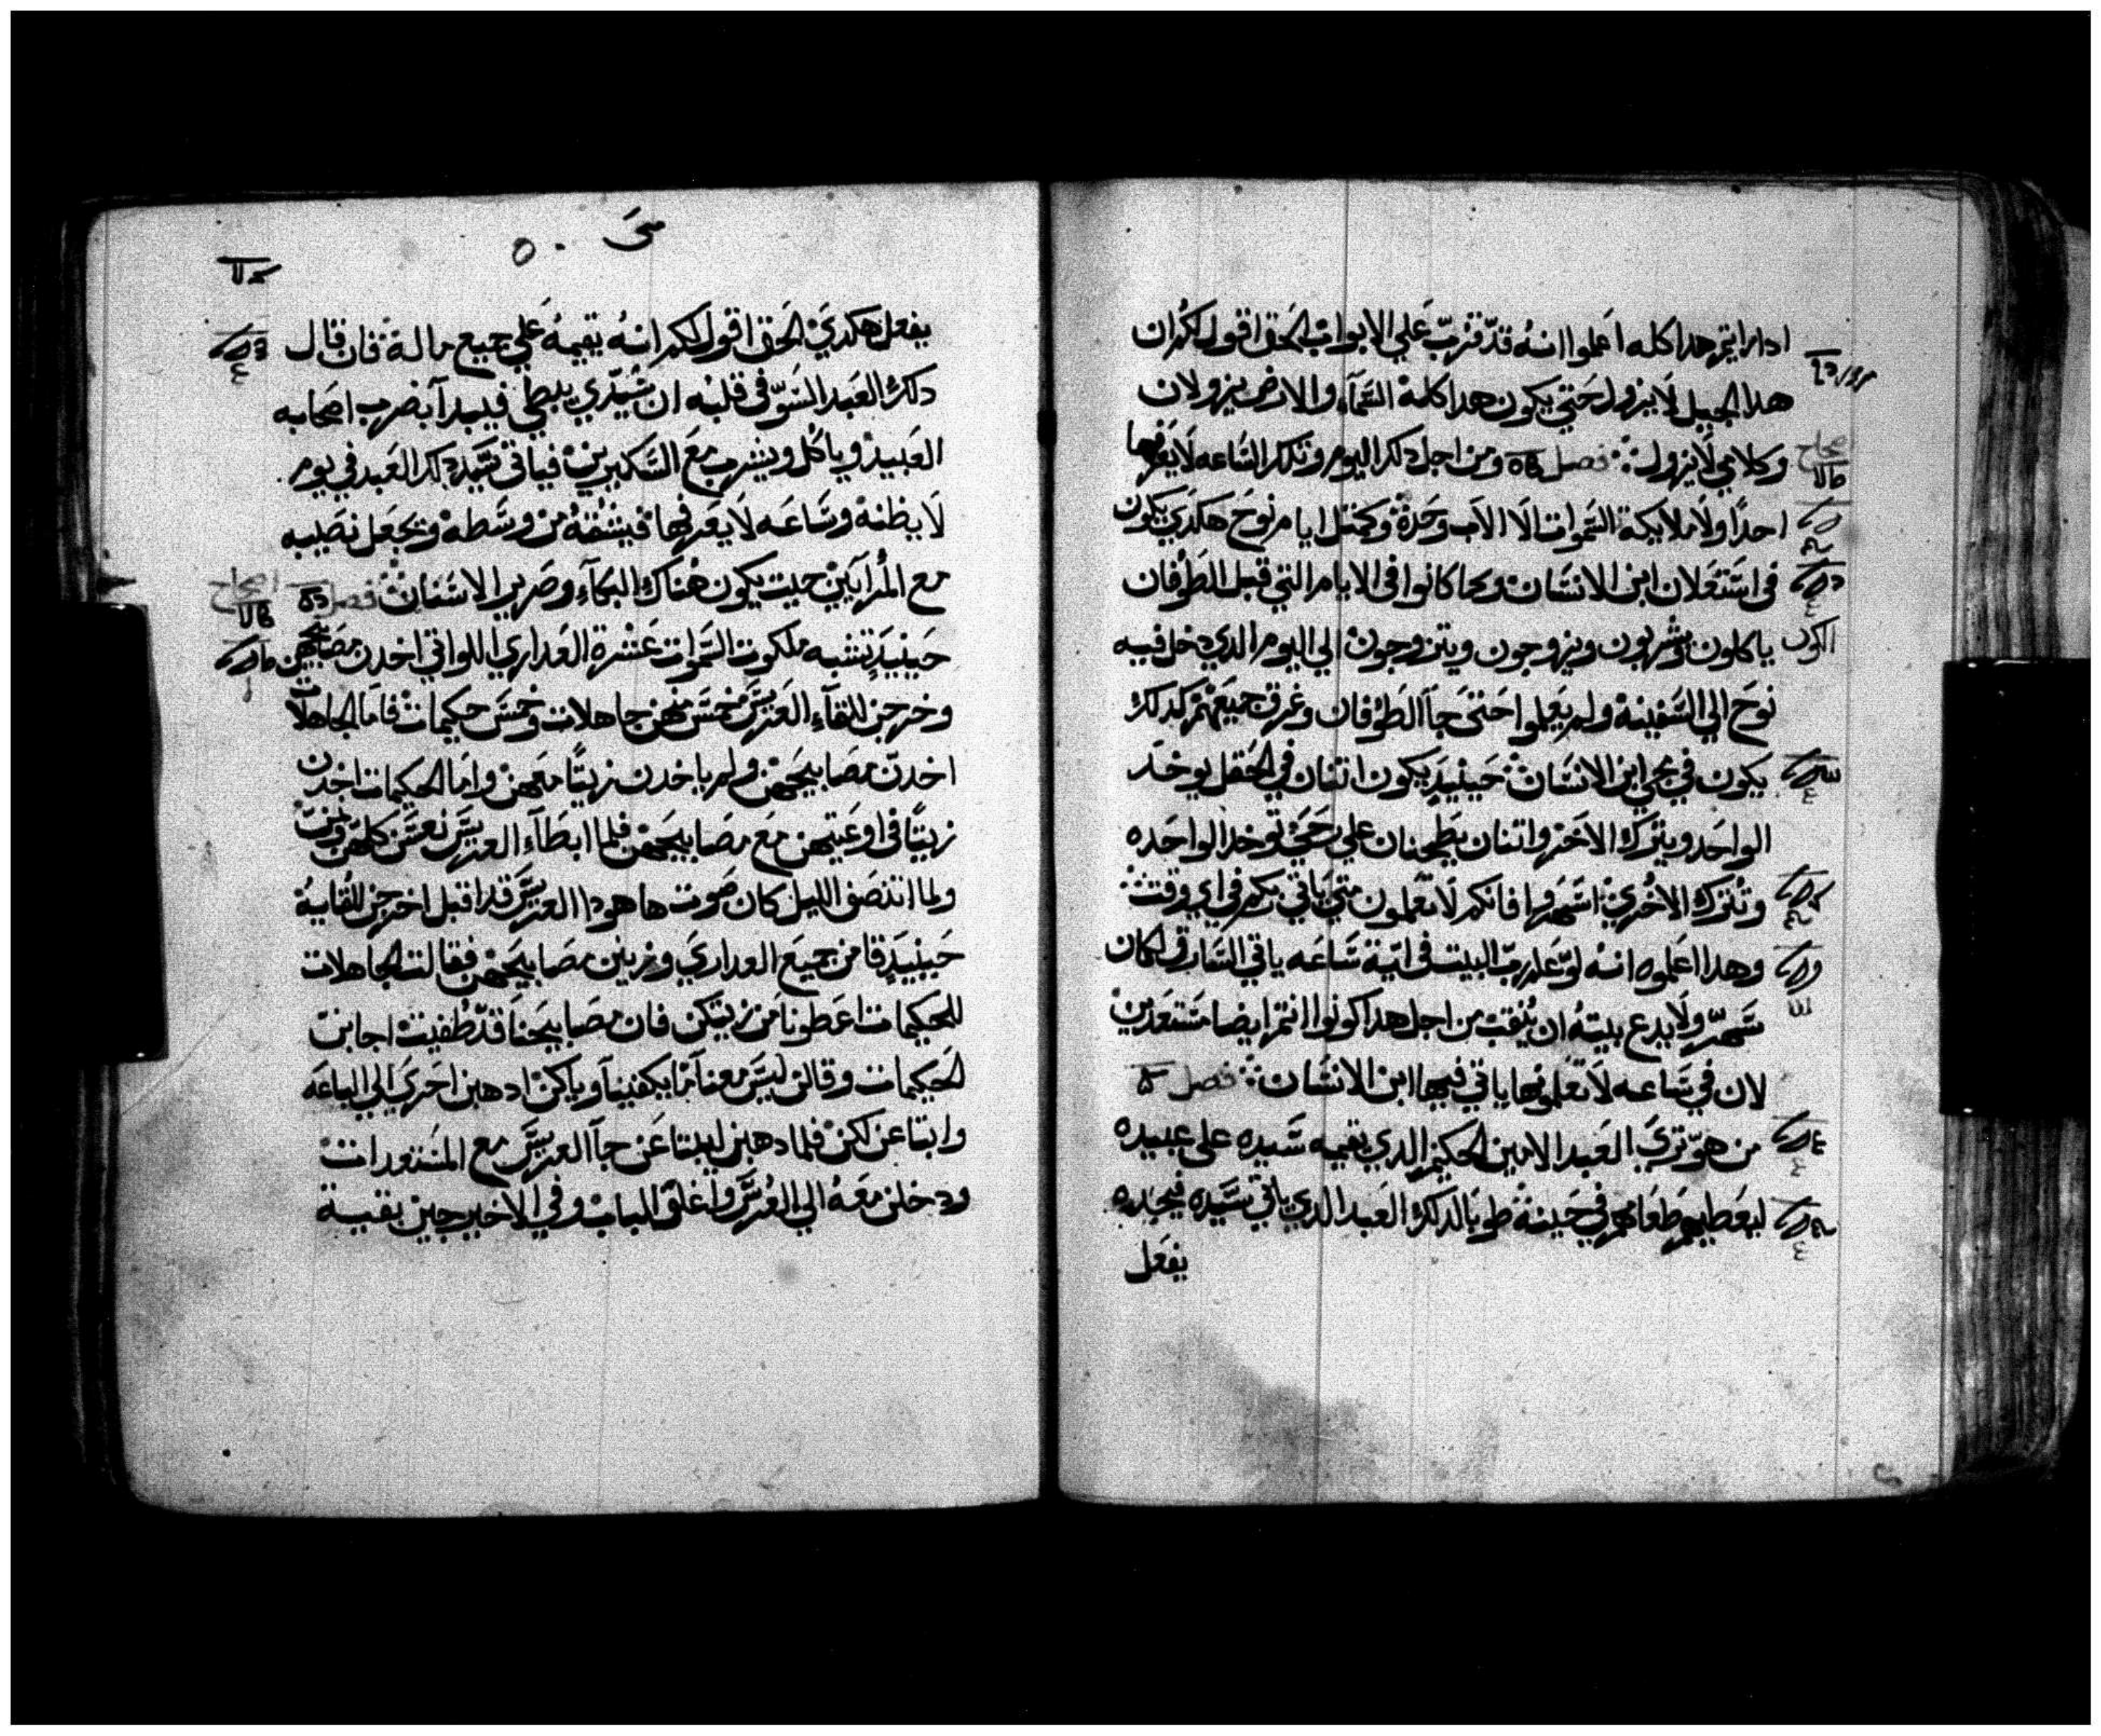 ادا رايتم هدا كله اعملوا انهُ قدّ قرُبّ عَلي الابواب الحق اقول لكُم ان
هدا الجيل لَا يزول حَتي يكون هدا كلهْ السَّمآء والارض يزولان
وكلامي لَا يزول فصل ومن اجل دلكَ اليوم وتلكَ السَّاعه لَا يَعَرفها
احدًا ولَا ملايكة السَّموات الَا الاَب وحَدهْ وكمَتل ايام نوحَ هَكدي يكون
في اسَتعَلان ابن الانسَان وكما كانوا في الايام التي قبل الطَوُفان
ياكلون ويُشربون ويزوجون ويتزوجونْ الي اليوم الدي دخل فيه
نوحَ الي السَّفينهْ ولم يَعَلموا حَتىَ جَآ الطَوُفان وغرق جميعَهُم كدلكَ
يكون في مجي ابن الانسَان حَينيدٍ يكون اتنان في الحَقل يوخَد
الواحَد ويتركَ الاَخَر واتنان يطَحِنان علي رحَيَ توخد الواحَده
وتُتركَ الاخُريْ اسَّهَروا فانكم لَا تَعَلمون متي يَاتي ربكم في اي وقتْ
وهدا اعَلموه انهُ لوّ عَلم ربّ البيت في ايّة سَّاعَه ياتي السَّارق لكان
سَّهرّ ولَا يدع بيتهُ ان يُنقبْ من اجل هدا كونوا انتم ايضا مَسَتعَدينْ
لان في سَاعه لَا تَعَلمونها ياتي فيها ابن الانسَان فصل
من هوّ تريَ العَبد الامين الحَكيم الدي يقيمه سَيده على عبيده
ليعَطيهم طَعَامهم في حَينهْ طوبَا لدلكَ العَبد الدي ياتي سَيّده فيجده
يفعَل
متىَ
يفعل هكديَ الحَق اقول لكم انهُ يقيمهُ عَلي جميع مالهْ فان قال
دلكَ العَبد السَوّ في قلبه ان سَّيّدي يبطي فيبدآ بضرب اصَحابه
العَبيدْ وياكُل ويشرب مَعَ السَّكيرينْ فياتي سَيّد دلكَ العَبد في يوم
لَا يظنهْ وسَّاعَه لَا يعَرفها فيشُقهُ من وسَّطهْ ويجعَل نصَيبه
مع المُرايَين حيت يكون هُناكَ البكآء وصَرير الاسَنان فصل
حَينيدٍ تشبه ملكوت السَّموات عَشرة العَداري اللواتي اخدن مصَابيحَهن
وخرجن للقآء العَريسَّ خمسَّ منهن جاهلات وخمسَّ حكيماتْ فامَا الجاهلات
اخدنّ مصَابيحَهن ولم ياخدن زيتًا معَهن وامَا الحكيمات اخدن
زيتًا في اوعَيتهن معَ مصَابيحَهن فلما ابطَآء العَريسَّ نعسَّن كلهّن ونمنّ
ولما انتصَف الليل كان صَوت ها هودا العَريسَّ قد اقبل اخرجن للقايهُ
حَينيدٍ قامن جميعَ العداريَ وزينّ مصَابيحَهن فقالت الجاهلات
للحَكيمات اعَطونا مَن زيتكن فان مصَابيحَنا قدّ طُفيتْ اجابن
الحَكيمات وقالن ليسَّ معنا مَا يكفينا وياكنْ ادهبن احَريَ الي الباعَه
وابتاعن لكنْ فلما دهبن ليبتاعَن جآ العَريسَّ مع المسَتعدات
ودخلن معَهُ الي العُرسَّ واغلق البابْ وفي الاخير جين بقية